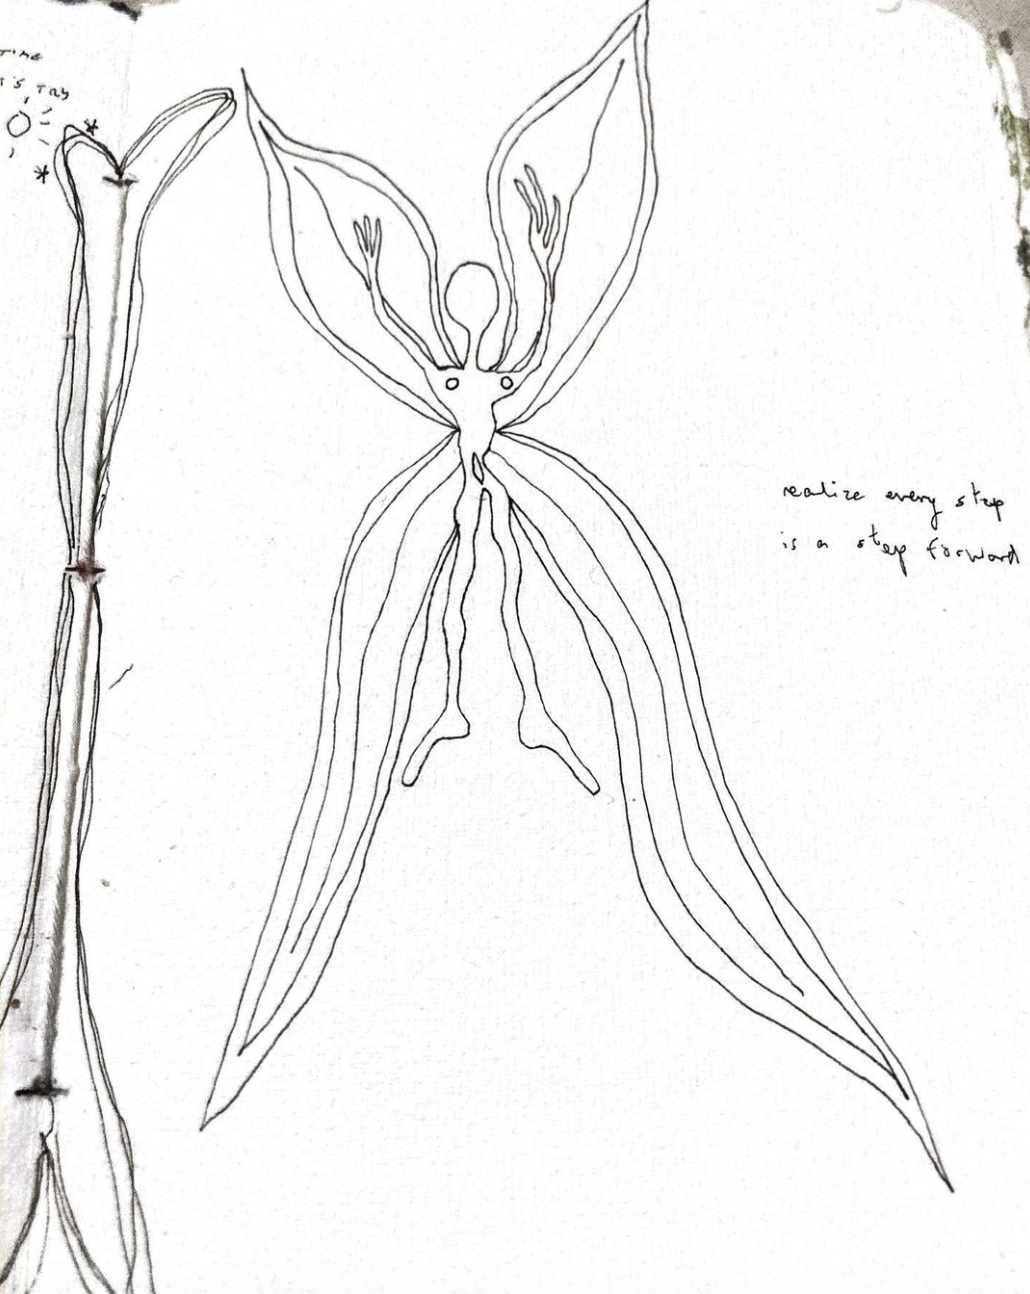 realize every step
is a step forward